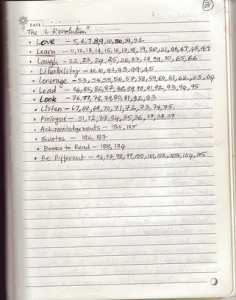 ③
DATE
The "L Revolution"
• Love – 5, 6, 7, 8, 9, 10, 91, 92
• Learn – 11, 12, 13, 14, 15, 16, 17, 18, 19, 20, 21, 46, 47, 48
• Laugh – 22, 23, 24, 25, 26, 27, 28, 29, 30, 65, 66
• 40, 41, 42, 43, 44, 45
• Leverage – 53, 54, 55, 56, 57, 58, 59, 60, 61, 62, 63, 64
• Lead – 84, 85, 86, 87, 88, 89, 90, 91, 92, 93, 94, 95
• Look – 76, 77, 78, 79, 80, 81, 82, 83
• Listen – 67, 68, 69, 70, 71, 72, 73, 74, 75
• Prologue – 31, 32, 33, 34, 35, 36, 37, 38, 39
• Acknowledgements – 185
• Quotes – 186, 187
• Books to Read – 188, 174
• Be Different – 96, 97, 98, 99, 100, 101, 102, 103, 104, 105